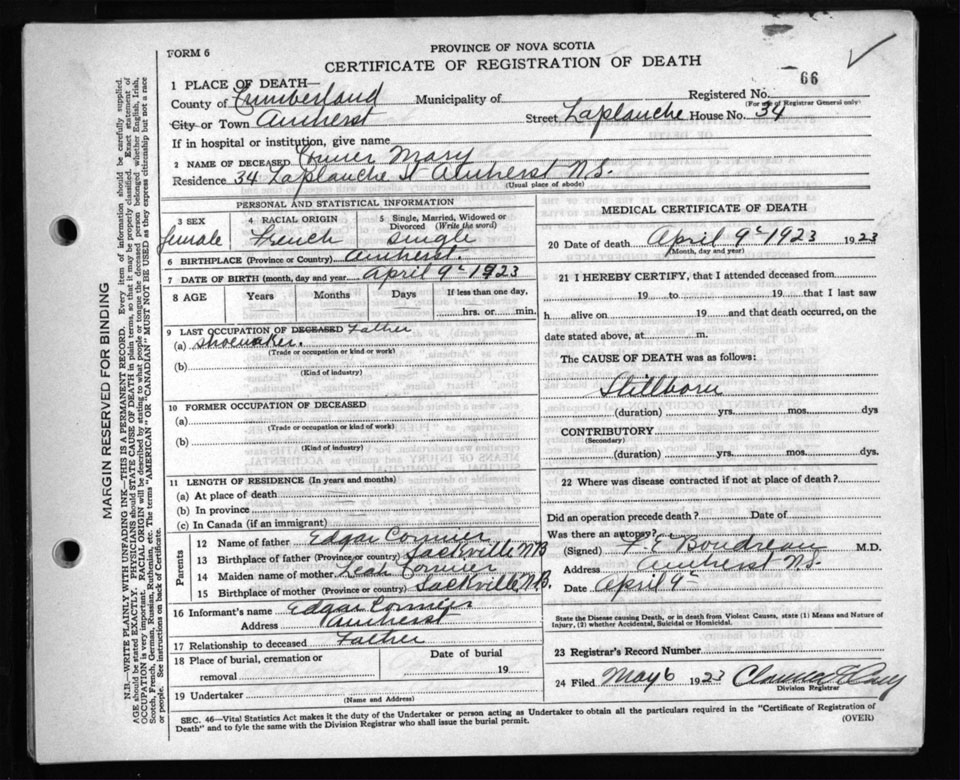 FORM 6
PROVINCE OF NOVA SCOTIA
CERTIFICATE OF REGISTRATION OF DEATH
66
1 PLACE OF DEATH—
Registered No.
(For use of Registrar General only)
County of Cumberland Municipality of
City or Town Amherst Street Laplanche House No. 34
If in hospital or institution, give name
2 NAME OF DECEASED Cormier Mary
Residence 34 Laplanche St Amherst N.S.
(Usual place of abode)
PERSONAL AND STATISTICAL INFORMATION
3 SEX female
4 RACIAL ORIGIN French
5 Single, Married, Widowed or Divorced (Write the word) single
6 BIRTHPLACE (Province or Country) Amherst.
7 DATE OF BIRTH (month, day and year) April 9th 1923
8 AGE Years Months Days If less than one day, hrs. or min.
9 LAST OCCUPATION OF DECEASED Father
(a) Shoemaker.
(Trade or occupation or kind or work)
(b)
(Kind of industry)
10 FORMER OCCUPATION OF DECEASED
(a)
(Trade or occupation or kind or work)
(b)
(Kind of industry)
11 LENGTH OF RESIDENCE (In years and months)
(a) At place of death
(b) In province
(c) In Canada (if an immigrant)
Parents
12 Name of father Edgar Cormier
13 Birthplace of father (Province or country) Sackville N B
14 Maiden name of mother Leah Cormier
15 Birthplace of mother (Province or country) Sackville N.B.
16 Informant's name Edgar Cormier
Address Amherst
17 Relationship to deceased Father
18 Place of burial, cremation or removal
Date of burial
19
19 Undertaker
(Name and Address)
MEDICAL CERTIFICATE OF DEATH
20 Date of death April 9th 1923 1923
(Month, day and year)
21 I HEREBY CERTIFY, that I attended deceased from
19 to 19 that I last saw
h alive on 19 and that death occurred, on
date stated above, at m.
The CAUSE OF DEATH was as follows:
Stillborn
(duration) yrs. mos. dys
CONTRIBUTORY
(Secondary)
(duration) yrs. mos. dys.
22 Where was disease contracted if not at place of death?
Did an operation precede death? Date of
Was there an autopsy?
(Signed) F E Boudreau M.D.
Address Amherst N.S.
Date April 9
State the Disease causing Death, or in death from Violent Causes, state (1) Means and Nature of
Injury, (2) whether Accidental, Suicidal or Homicidal.
23 Registrar's Record Number
24 Filed May 6 1923
Division Registrar
SEC. 46—Vital Statistics Act makes it the duty of the Undertaker or person acting as Undertaker to obtain all the particulars required in the "Certificate of Registration of
Death" and to fyle the same with the Division Registrar who shall issue the burial permit.
(OVER)
MARGIN RESERVED FOR BINDING
N.B.—WRITE PLAINLY WITH UNFADING INK—THIS IS A PERMANENT RECORD. Every item of information should be carefully supplied.
AGE should be stated EXACTLY. PHYSICIANS should STATE CAUSE OF DEATH in plain terms, so that it may be properly classified. Exact statement of
OCCUPATION is very important. RACIAL ORIGIN will be described by stating to what people or tongue the deceased person belonged whether English, Irish,
Scotch, French, German, Russian, Ruthenian, etc. The terms "AMERICAN" OR "CANADIAN" MUST NOT BE USED as they express citizenship but not a race
or people. See instructions on back of Certificate.